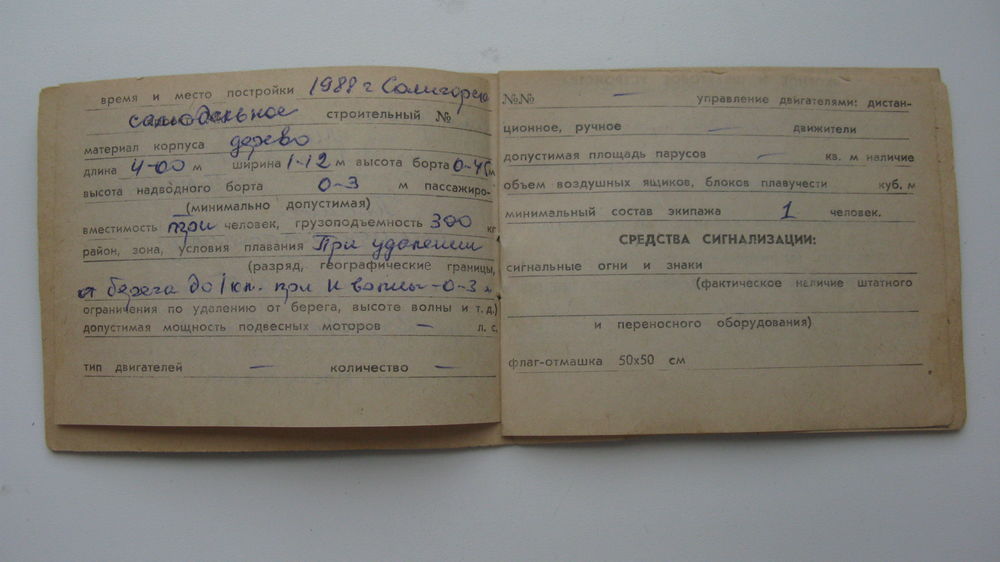 время и место постройки 1988 г Солигорск
самодельное строительный №
материал корпуса дерево
длина 4-00 м ширина 1-12 м высота борта 0-45 м
высота надводного борта 0-3 м пассажиро-
(минимально допустимая)
вместимость три человек, грузоподъемность 300 кг
район, зона, условия плавания При удалении
(разряд, географические границы,
от берега до 1 км. при h волны-0-3 м
ограничения по удалению от берега, высоте волны и т. д.)
допустимая мощность подвесных моторов — л. с.
тип двигателей — количество —
№№ — управление двигателями: дистан-
ционное, ручное — движители
допустимая площадь парусов — кв. м наличие
объем воздушных ящиков, блоков плавучести куб. м
минимальный состав экипажа 1 человек.
СРЕДСТВА СИГНАЛИЗАЦИИ:
сигнальные огни и знаки
(фактическое наличие штатного
и переносного оборудования)
флаг-отмашка 50х50 см